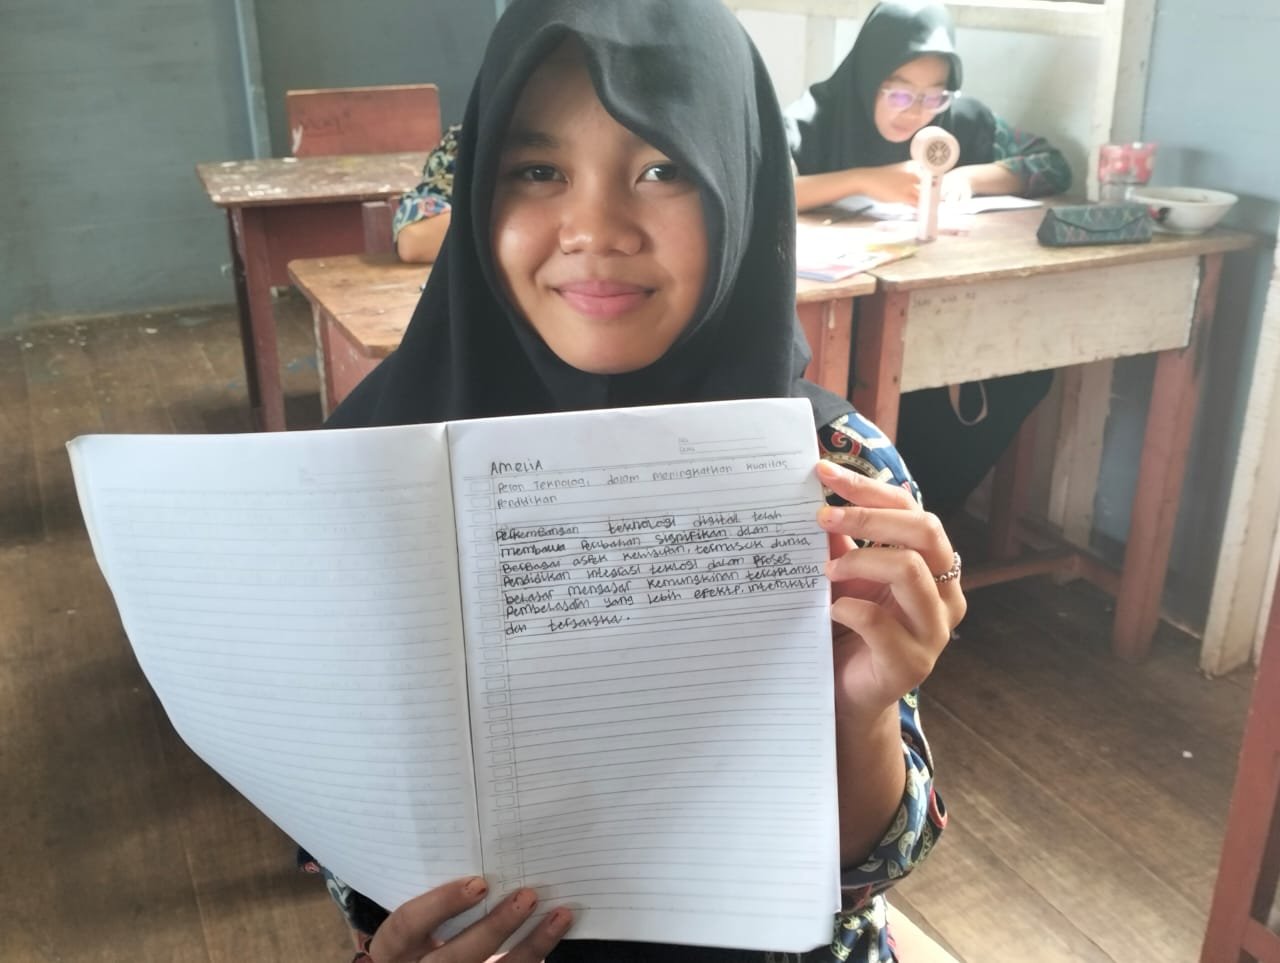 AMELIA
Peran Teknologi dalam meningkatkan kualitas
Pendidikan
Perkembangan teknologi digital telah
membawa Perubahan signifikan dalam
berbagai aspek kehidupan, termasuk dunia
Pendidikan integrasi teklogi dalam Proses
belajar mengajar kemungkinan terciptanya
Pembelajaran yang lebih efektif, interaktif
dan